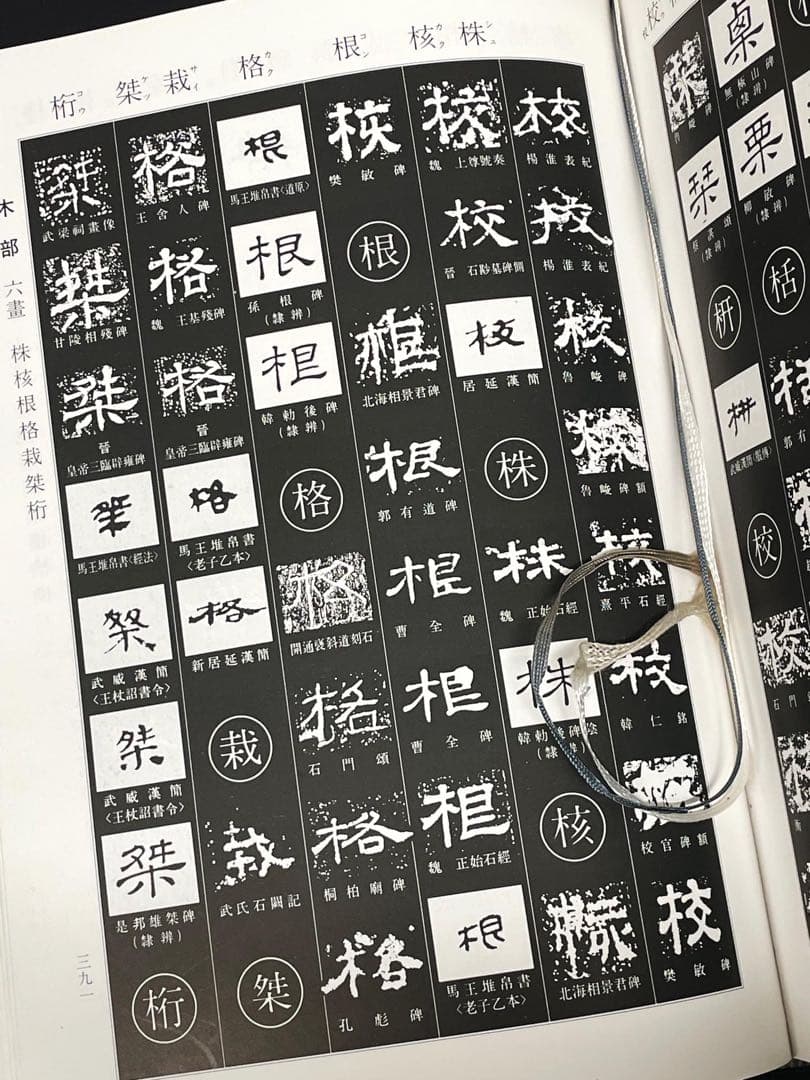 校
無極山碑
(隸辨)
栗
(隸辨)
栝
郭有
栞
(隸辨)
枅
武威漢簡〈服傳〉
校
校
石門
株シュ
核カク
根コン
格カク
栽サイ
桀ケツ
桁コウ
校
楊淮表紀
校
楊淮表紀
校
魯峻碑
校
魯峻碑額
校
熹平石經
校
韓仁銘
校官碑額
校
樊敏碑
校
魏 上尊號奏
校
晉 石尠墓碑側
校
居延漢簡
株
株
魏 正始石經
株
韓勅後碑陰
(隸辨)
核
核
北海相景君碑
核
樊敏碑
根
根
北海相景君碑
根
郭有道碑
根
曹全碑
根
曹全碑
根
魏 正始石經
根
馬王堆帛書
〈老子乙本〉
根
馬王堆帛書〈道原〉
根
孫根碑
(隸辨)
根
韓勅後碑
(隸辨)
格
格
開通褒斜道刻石
格
石門頌
格
桐柏廟碑
格
孔彪碑
格
王舍人碑
格
魏 王基殘碑
格
晉
皇帝三臨辟雍碑
格
馬王堆帛書
〈老子乙本〉
格
新居延漢簡
栽
栽
武氏石闕記
桀
桀
武梁祠畫像
桀
甘陵相殘碑
桀
晉
皇帝三臨辟雍碑
桀
馬王堆帛書〈經法〉
桀
武威漢簡
〈王杖詔書令〉
桀
武威漢簡
〈王杖詔書令〉
桀
是邦雄桀碑
(隸辨)
桁
木部 六畫 株核根格栽桀桁
三九一